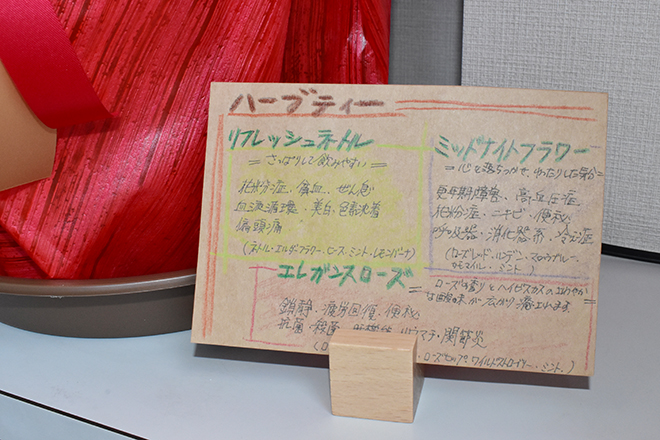 ハーブティー
リフレッシュネトル
= さっぱりして飲みやすい =
花粉症、貧血、ぜん息
血液循環、美白、色素沈着
偏頭痛
(ネトル・エルダーフラワー・ヒース・ミント・レモンバーナ)
ミッドナイトフラワー
=心を落ちつかせ、ゆったりした気分=
更年期障害、高血圧症
花粉症、ニキビ、便秘
呼吸器、消化器系、冷え症
(ローズレッド・リンデン・マロウブルー、
カモマイル・ミント、)
エレガンスローズ
=ローズの香りとハイビスカスのさわやか=
な酸味が広がり潤います。
鎮静、疲労回復、便秘
抗菌 リウマチ・関節炎
・ローズヒップ・ワイルドストロベリー・ミント、)